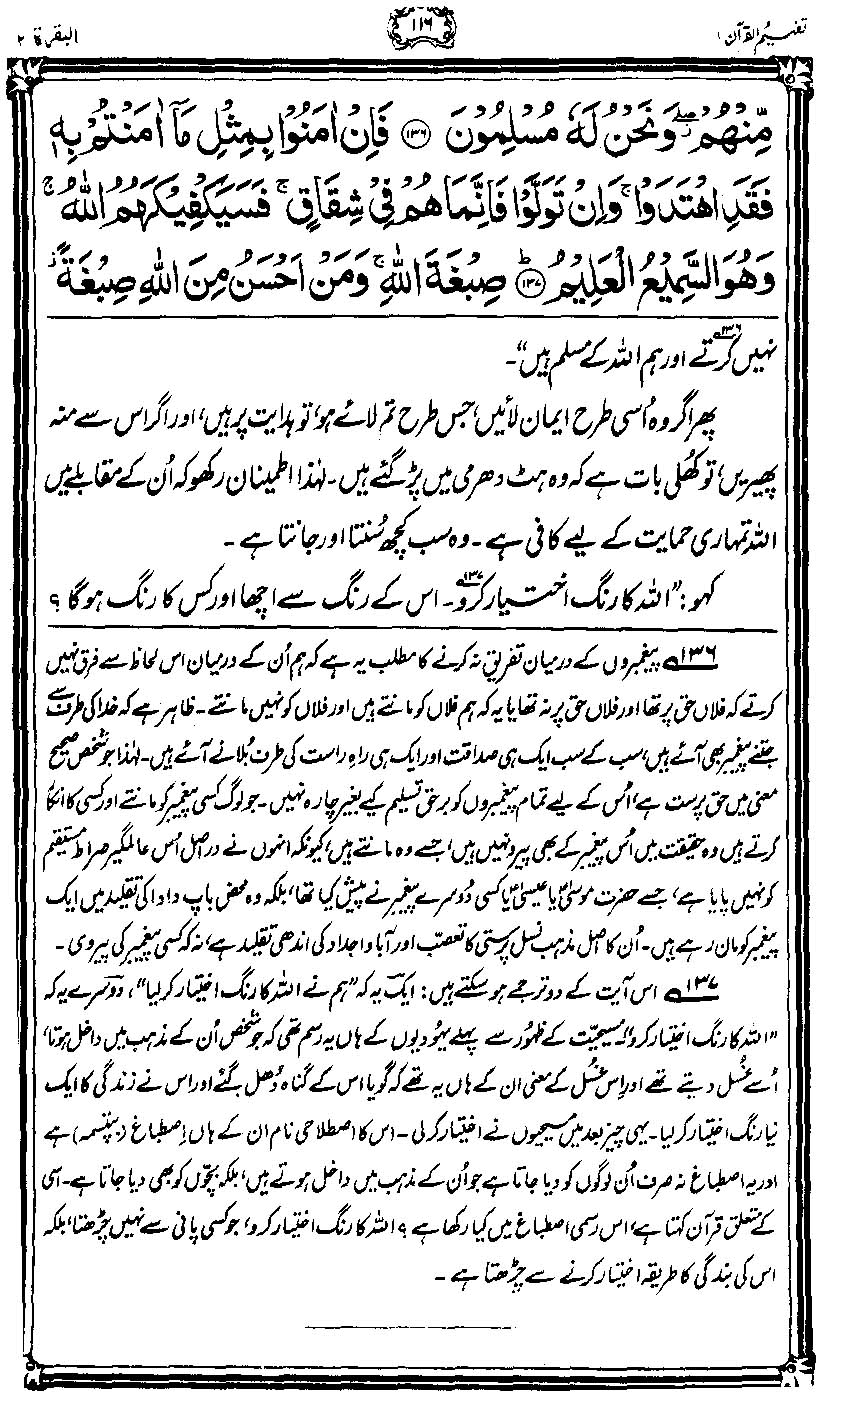 تفہیم القرآن ۱
۱۱۶
البقرۃ ۲
مِّنْهُمْ ۖ وَنَحْنُ لَهٗ مُسْلِمُوْنَ ﴿۱۳۶﴾ فَاِنْ اٰمَنُوْا بِمِثْلِ مَاۤ اٰمَنْتُمْ بِهٖ
فَقَدِ اهْتَدَوْا ۚ وَاِنْ تَوَلَّوْا فَاِنَّمَا هُمْ فِيْ شِقَاقٍ ۚ فَسَيَكْفِيْكَهُمُ اللّٰهُ ۚ
وَهُوَ السَّمِيْعُ الْعَلِيْمُ ﴿۱۳۷﴾ؕ صِبْغَةَ اللّٰهِ ۚ وَمَنْ اَحْسَنُ مِنَ اللّٰهِ صِبْغَةً ۫
نہیں کرتے ۱۳۶ اور ہم اللہ کے مسلم ہیں“۔
پھر اگر وہ اُسی طرح ایمان لائیں، جس طرح تم لائے ہو، تو ہدایت پر ہیں، اور اگر اس سے منہ
پھیریں، تو کھُلی بات ہے کہ وہ ہٹ دھرمی میں پڑ گئے ہیں۔ لہٰذا اطمینان رکھو کہ اُن کے مقابلے میں
اللہ تمہاری حمایت کے لیے کافی ہے۔ وہ سب کچھ سُنتا اور جانتا ہے۔
کہو: ”اللہ کا رنگ اختیار کرو ۱۳۷۔ اس کے رنگ سے اچھا اور کس کا رنگ ہوگا؟
۱۳۶ پیغمبروں کے درمیان تفریق نہ کرنے کا مطلب یہ ہے کہ ہم اُن کے درمیان اس لحاظ سے فرق نہیں
کرتے کہ فلاں حق پر تھا اور فلاں حق پر نہ تھا یا یہ کہ ہم فلاں کو مانتے ہیں اور فلاں کو نہیں مانتے۔ ظاہر ہے کہ خدا کی طرف سے
جتنے پیغمبر بھی آئے ہیں، سب کے سب ایک ہی صداقت اور ایک ہی راہِ راست کی طرف بُلانے آئے ہیں۔ لہٰذا جو شخص صحیح
معنی میں حق پرست ہے، اُس کے لیے تمام پیغمبروں کو برحق تسلیم کیے بغیر چارہ نہیں۔ جو لوگ کسی پیغمبر کو مانتے اور کسی کا انکار
کرتے ہیں وہ حقیقت میں اُس پیغمبر کے بھی پیرو نہیں ہیں، جسے وہ مانتے ہیں، کیونکہ انہوں نے دراصل اُس عالمگیر صراطِ مستقیم
کو نہیں پایا ہے، جسے حضرت موسیٰؑ یا عیسیٰؑ یا کسی دُوسرے پیغمبر نے پیش کیا تھا، بلکہ وہ محض باپ دادا کی تقلید میں ایک
پیغمبر کو مان رہے ہیں۔ اُن کا اصل مذہب نسل پرستی کا تعصّب اور آبا و اجداد کی اندھی تقلید ہے، نہ کہ کسی پیغمبر کی پیروی۔
۱۳۷ اس آیت کے دو ترجمے ہو سکتے ہیں: ایک یہ کہ ”ہم نے اللہ کا رنگ اختیار کر لیا“، دُوسرے یہ کہ
”اللہ کا رنگ اختیار کرو“۔ مسیحیّت کے ظہُور سے پہلے یہُودیوں کے ہاں یہ رسم تھی کہ جو شخص اُن کے مذہب میں داخل ہوتا،
اُسے غُسل دیتے تھے اور اِس غُسل کے معنی ان کے ہاں یہ تھے کہ گویا اس کے گناہ دُھل گئے اور اس نے زندگی کا ایک
نیا رنگ اختیار کر لیا۔ یہی چیز بعد میں مسیحیوں نے اختیار کر لی۔ اس کا اصطلاحی نام ان کے ہاں اِصطباغ (بپتسمہ) ہے
اور یہ اصطباغ نہ صرف اُن لوگوں کو دیا جاتا ہے جو اُن کے مذہب میں داخل ہوتے ہیں، بلکہ بچّوں کو بھی دیا جاتا ہے۔ اسی
کے متعلق قرآن کہتا ہے، اس رسمی اصطباغ میں کیا رکھا ہے؟ اللہ کا رنگ اختیار کرو، جو کسی پانی سے نہیں چڑھتا، بلکہ
اس کی بندگی کا طریقہ اختیار کرنے سے چڑھتا ہے۔